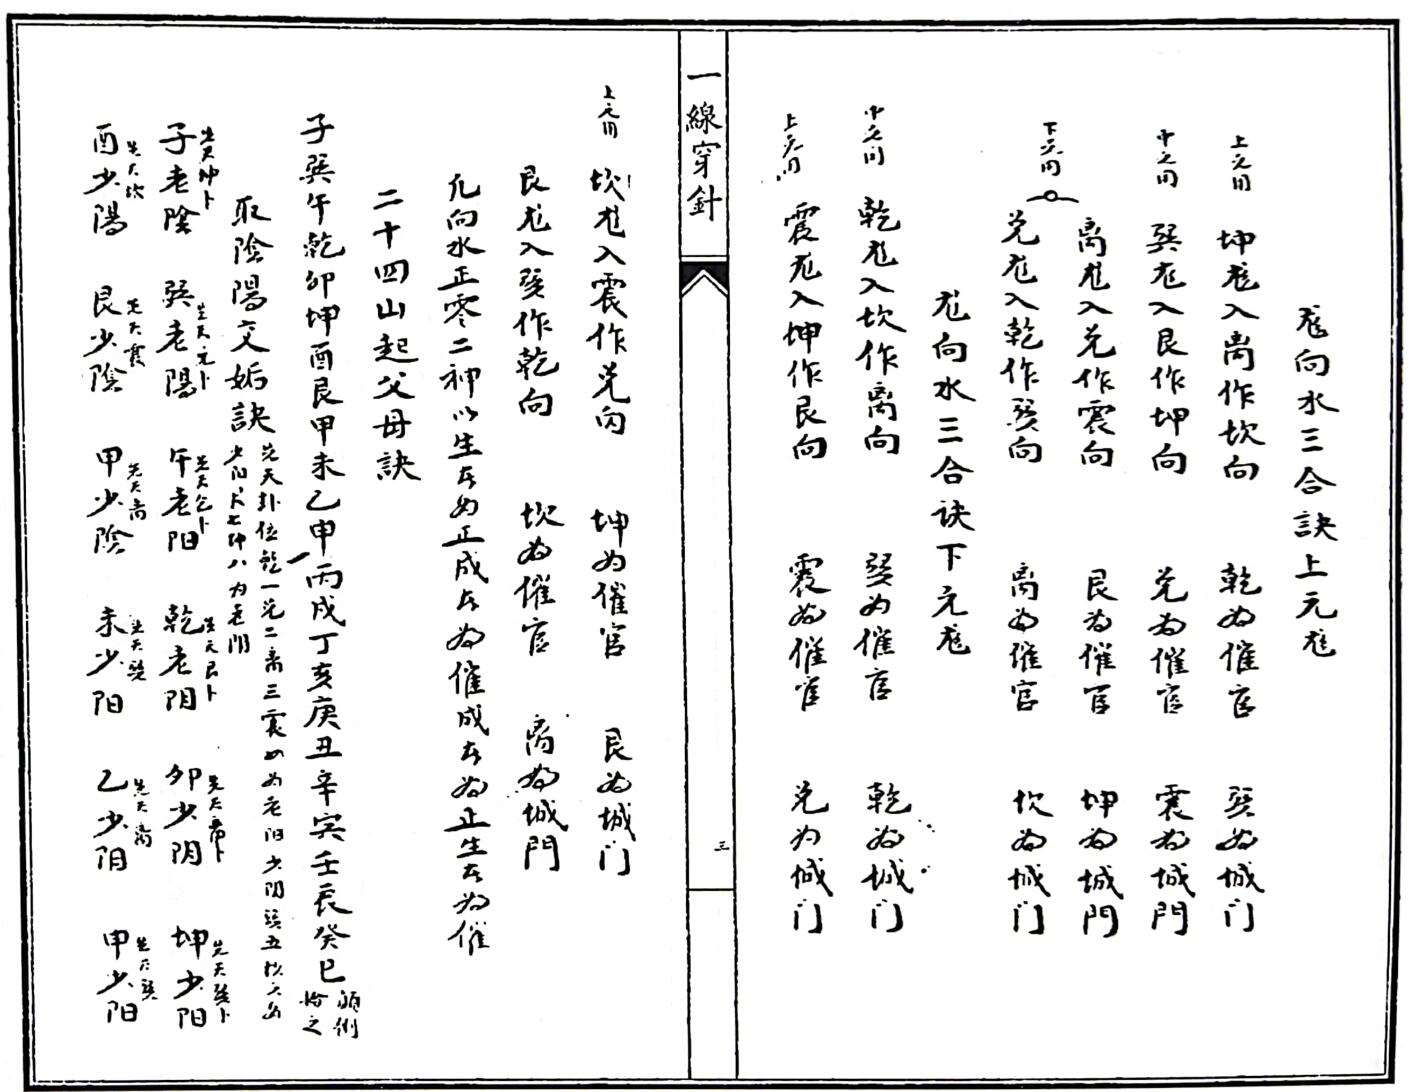 龙向水三合訣上元龙
上元用 坤龙入离作坎向 乾為催官 巽為城门
中元用 巽龙入艮作坤向 兑為催官 震為城門
下元用 离龙入兑作震向 艮為催官 坤為城門
兑龙入乾作巽向 离為催官 坎為城门
龙向水三合诀下元龙
中元用 乾龙入坎作离向 巽为催官 乾為城门
上元用 震龙入坤作艮向 震為催官 兑为城门
一線穿針
三
上元用 坎龙入震作兑向 坤為催官 艮為城门
艮龙入巽作乾向 坎為催官 离為城門
凡向水正零二神以生在为正成在為催成在為正生在為催
二十四山起父母訣
子巽午乾卯坤酉艮甲未乙申丙戌丁亥庚丑辛寅壬辰癸巳 顛倒
拾之
取陰陽交姤訣 先天卦位乾一兑二离三震四为老阳少阴巽五坎六为
少阳艮七坤八为老阴
子老陰 先天坤卜 巽老陽 午老阳 乾老阴 先天艮卜 卯少阴 先天离卜 坤少阳 先天巽卜
酉少陽 先天坎 艮少陰 先天震 甲少陰 先天离 未少阳 先天巽 乙少阴 先天离 甲少阳 先天巽